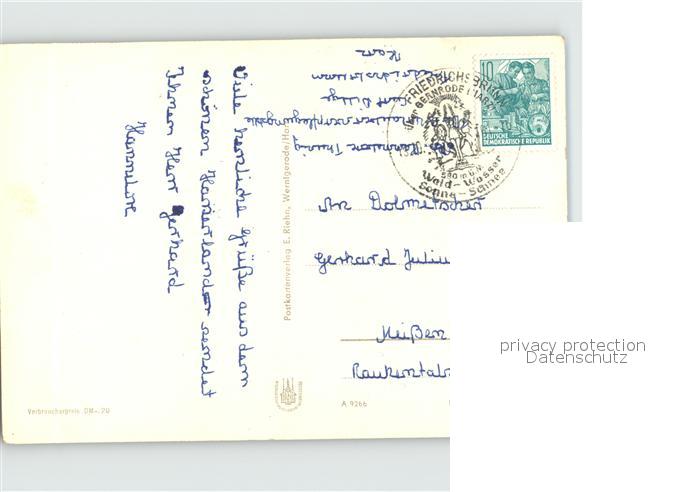 Viele herzliche Grüße aus dem
schönen Harzerland sendet
Ihnen Herr Gerhard
Hannelore
Verbraucherpreis DM -.20
Postkartenverlag E. Riehn, Wernigerode/Harz
A 9266
Harz
FRIEDRICHSBRUNN
über GERNRODE (HARZ)
580 m ü.N.
Wald - Wasser
Sonne - Schnee
10
DEUTSCHE
DEMOKRATISCHE REPUBLIK
An Dolmetscher
Gerhard
Meißen
privacy protection
Datenschutz